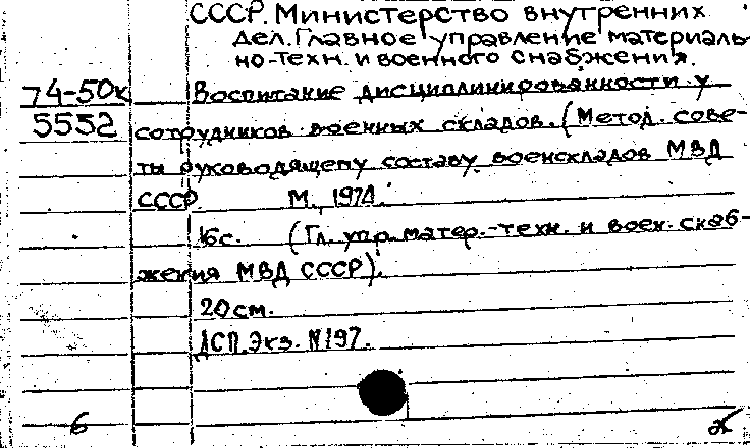 СССР. Министерство внутренних
дел. Главное управление материаль-
но-техн. и военного снабжения.
74-50к Воспитание дисциплинированности у
5552 сотрудников военных складов. (Метод. сове-
ты руководящему составу военскладов МВД
СССР М., 1974.
16с. (Гл. упр. матер.-техн. и воен. снаб-
жения МВД СССР).
20см.
ДСП. Экз. N197.
б